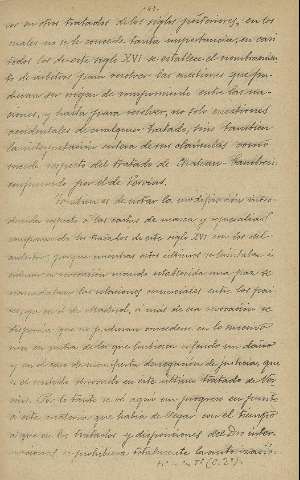 -63-
ces en otros tratados de los siglos posteriores, en los
cuales no se le concede tanta importancia, en casi
todos los de este siglo XVI se establece el nombramien
to de árbitros para resolver las cuestiones que pu-
dieran ser origen de rompimiento entre las na-
ciones, y hasta para resolver, no solo cuestiones
accidentales de cualquier tratado, sino tambien
la interpretación entera de sus cláusulas como
sucede respecto del tratado de Chateau-Cambresis
confirmado por el de Vervins.
Tambien es de notar la modificación intro-
ducida respecto á las cartas de marca y represalias
comparando los tratados de este siglo XVI con los del
anterior, porque mientras estos últimos se
en cuando establecida una paz se
reanudaban las relaciones comerciales entre los pai-
ses, que en el de Madrid, á mas de esa
disponía que no pudieran concederse en lo sucesivo
mas en justicia de los que hubiesen inferido un daño
y en el caso de manifiesta denegación de justicia, que
es el sentido en este último tratado de Ver-
vins. Por lo tanto se ve aquí un progreso en punto
á esta materia que había de llegar con el tiempo
á que en los tratados y disposiciones del Dro inter-
nacional se prohibiera totalmente